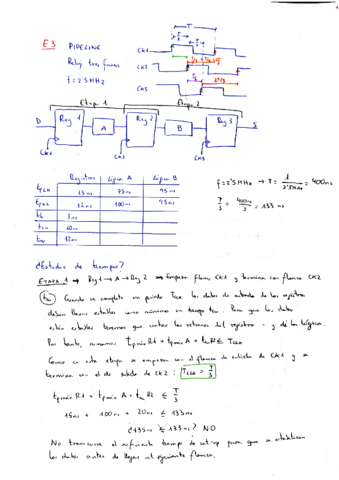 E3 PIPELINE
Reloj tres fases
f = 2'5 MHz
T
CK1
CK2
CK3
Etapa 1
Etapa 2
D
Reg 1
A
Reg 2
B
Reg 3
S
CK1
CK2
CK3
Registros
Lógica A
Lógica B
tpLH 15 ns 75 ns 95 ns
tpHL 12 ns 100 ns 95 ns
th 3 ns
tsu 20 ns
tw 12 ns
f = 2'5 MHz → T = 1 / 2'5 MHz = 400 ns
T/3 = 400 ns / 3 = 133 ns
¿Estudio de tiempos?
ETAPA 1 → Reg 1 → A → Reg 2 → Empieza flanco CK1 y termina con flanco CK2
tsu Cuando se complete un periodo TCLK los datos de entrada de los registros
deben llevar estables como mínimo un tiempo tsu. Para que los datos
estén estables tenemos que contar los retardos del registro y de la lógica.
Por tanto, tpmáx R1 + tpmáx A + tsu R2 ≤ TCLK
Como en esta etapa se empieza con el flanco de subida de CK1 y se
termina con el de subida de CK2: TCLK = T/3
tpmáx R1 + tpmáx A + tsu R2 ≤ T/3
15 ns + 100 ns + 20 ns ≤ 133 ns
¿135 ns ≤ 133 ns? NO
No transcurre el suficiente tiempo de set-up para que se estabilicen
los datos antes de llegar al siguiente flanco.